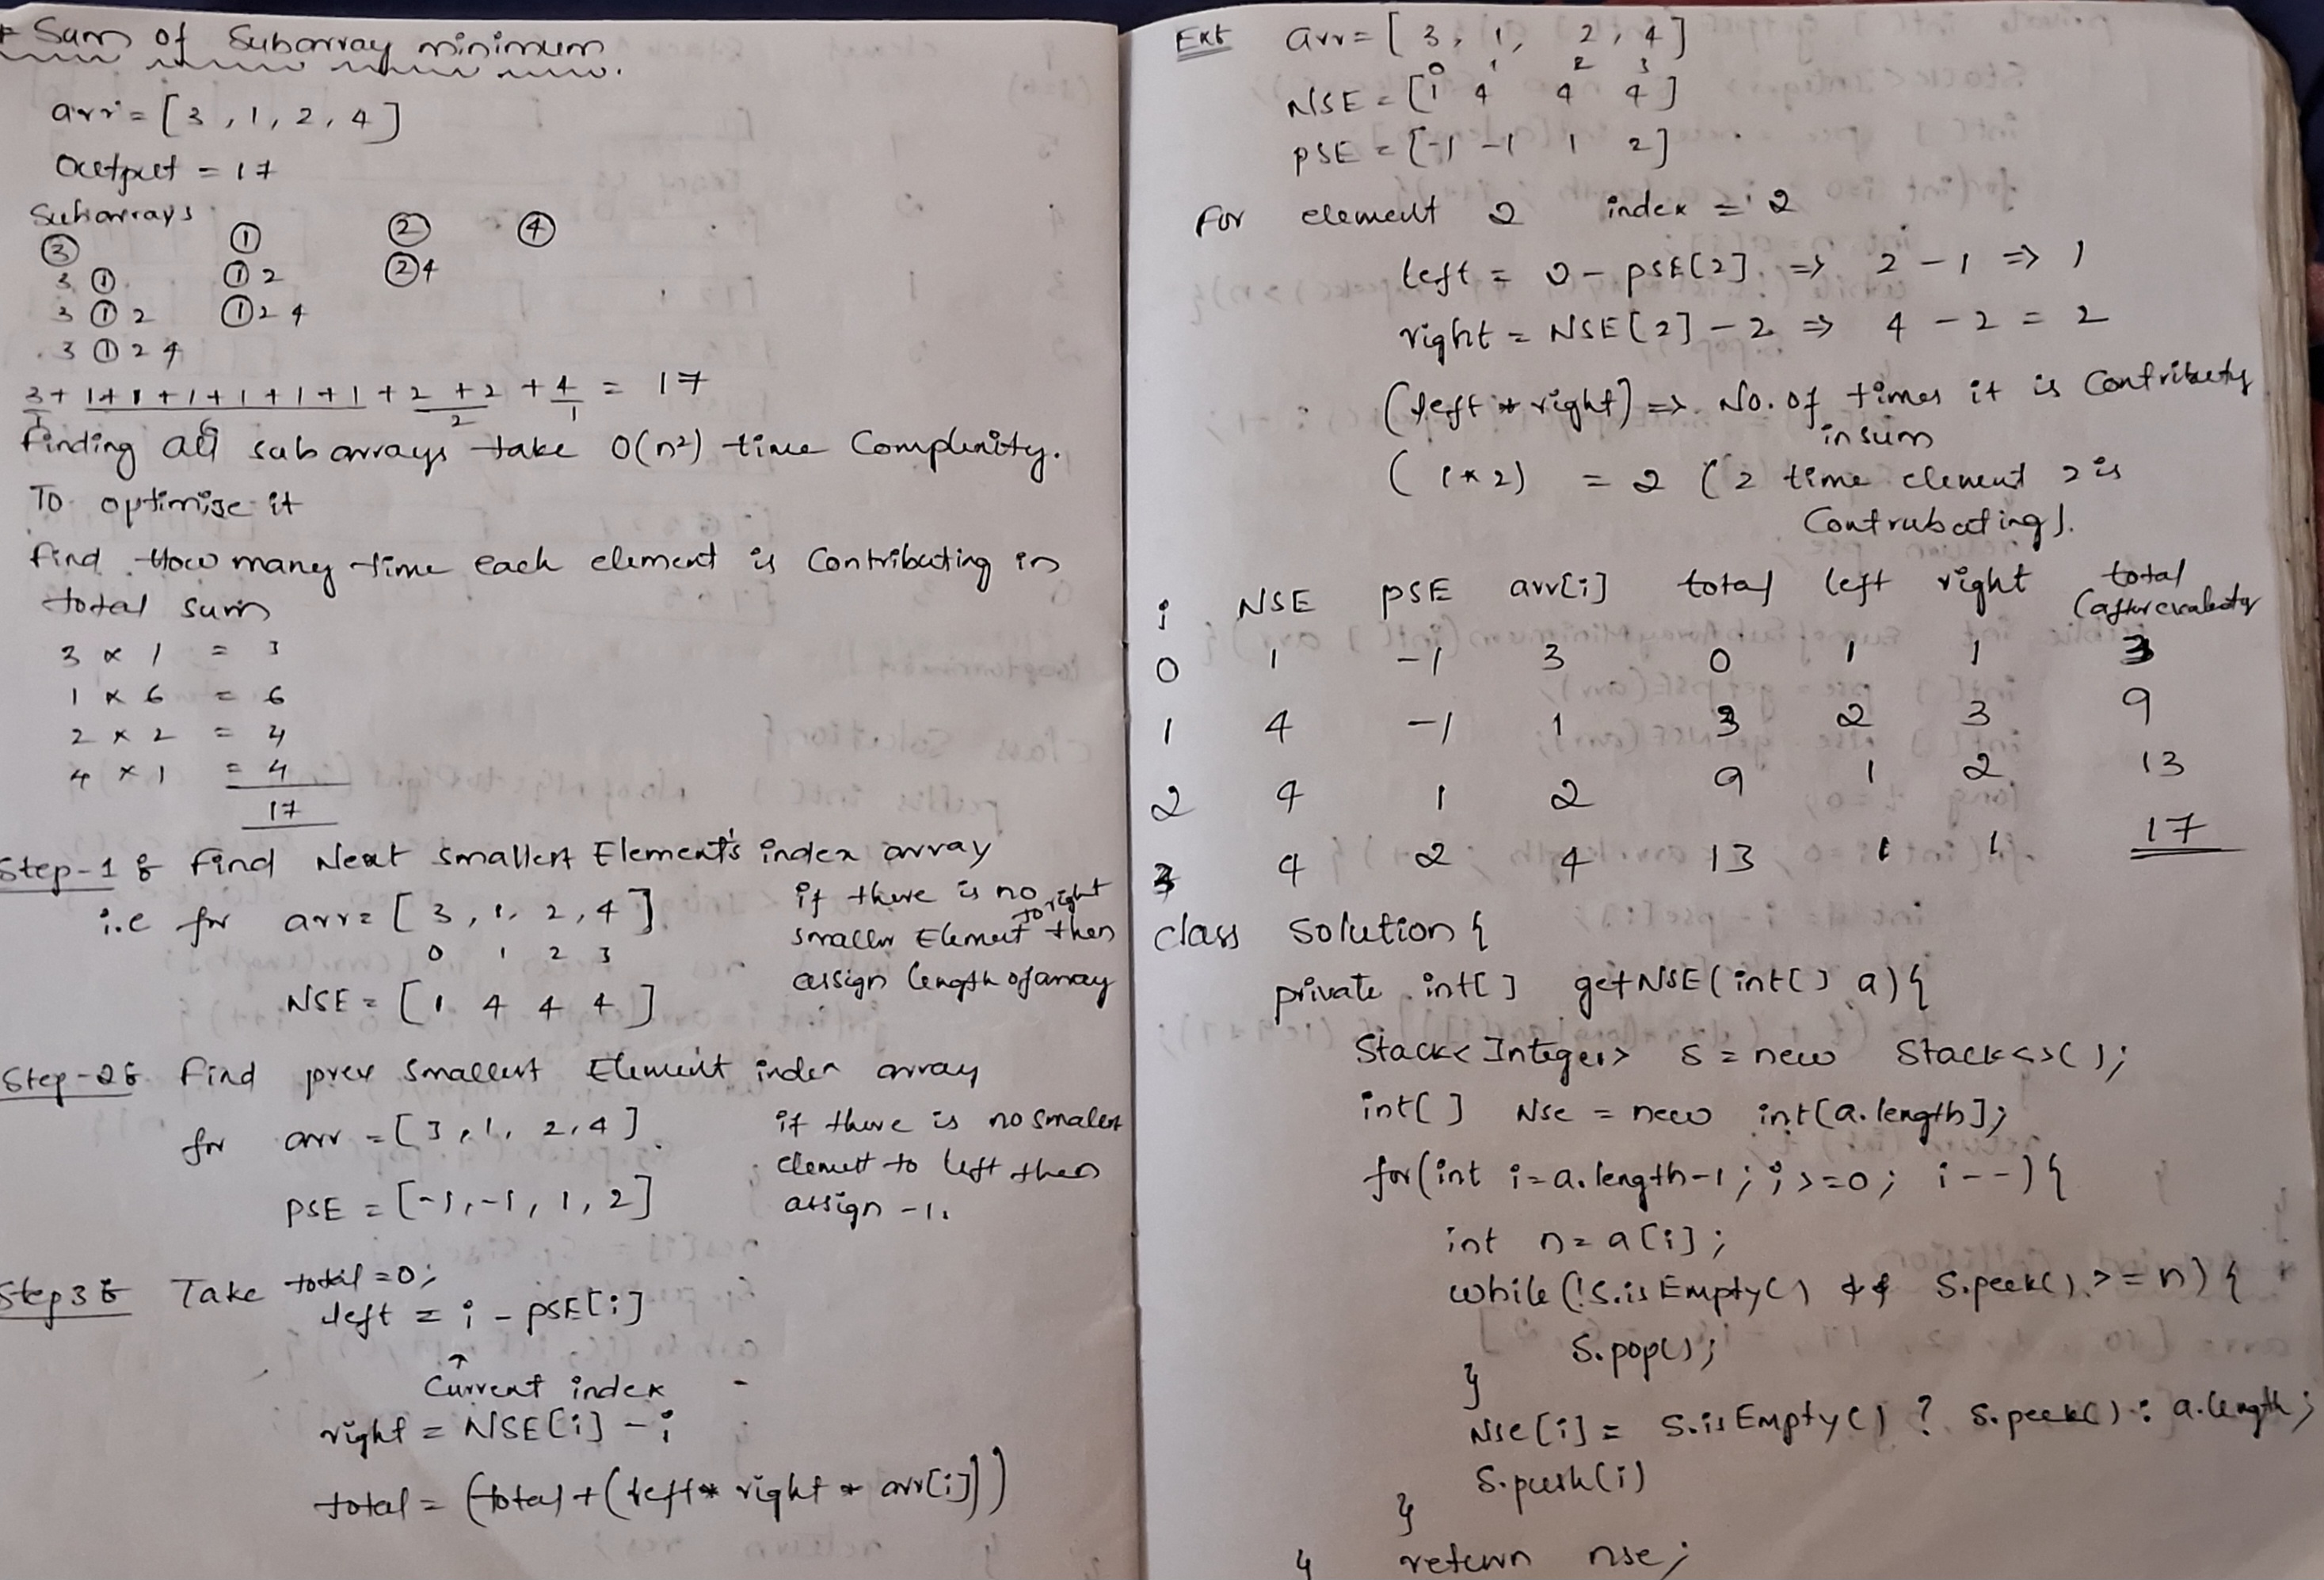 * Sum of Subarray minimum.
arr = [3, 1, 2, 4]
Output = 17
Subarrays
3 1 2 4
3 1 1 2 2 4
3 1 2 1 2 4
3 1 2 4
3 + 1+1+1+1+1+1 + 2+2 + 4 = 17
1 6 2 1
Finding all subarrays take O(n²) time Complexity.
To optimise it
find How many time each element is Contributing in
total sum
3 × 1 = 3
1 × 6 = 6
2 × 2 = 4
4 × 1 = 4
17
Step-1 : Find Next smallest Element's index array
i.e for arr = [3, 1, 2, 4]
0 1 2 3
NSE = [1 4 4 4]
if there is no
smaller Element to right then
assign length of array
Step-2 : Find prev smallest Element index array
for arr = [3, 1, 2, 4]
PSE = [-1, -1, 1, 2]
if there is no smallest
element to left then
assign -1.
Step 3 : Take total = 0;
left = i - PSE[i]
↑
Current index
right = NSE[i] - i
total = (total + (left * right * arr[i]))
Ex: arr = [3, 1, 2, 4]
0 1 2 3
NSE = [1 4 4 4]
PSE = [-1 -1 1 2]
For element 2 index = 2
left = 2 - PSE[2] => 2 - 1 => 1
right = NSE[2] - 2 => 4 - 2 = 2
(left * right) => No. of times it is Contributing
in sum
(1*2) = 2 (2 time element 2 is
Contrubating).
i NSE PSE arr[i] total left right total (after evaluating
0 1 -1 3 0 1 1 3
1 4 -1 1 3 2 3 9
2 4 1 2 9 1 2 13
3 4 2 4 13 1 1 17
class Solution {
private int[] getNSE(int[] a){
Stack<Integer> S = new Stack<>();
int[] Nse = new int[a.length];
for(int i=a.length-1; i>=0; i--){
int n = a[i];
while(!S.isEmpty() && S.peek() >= n){
S.pop();
}
Nse[i] = S.isEmpty() ? S.peek() : a.length;
S.push(i)
}
return nse;
}